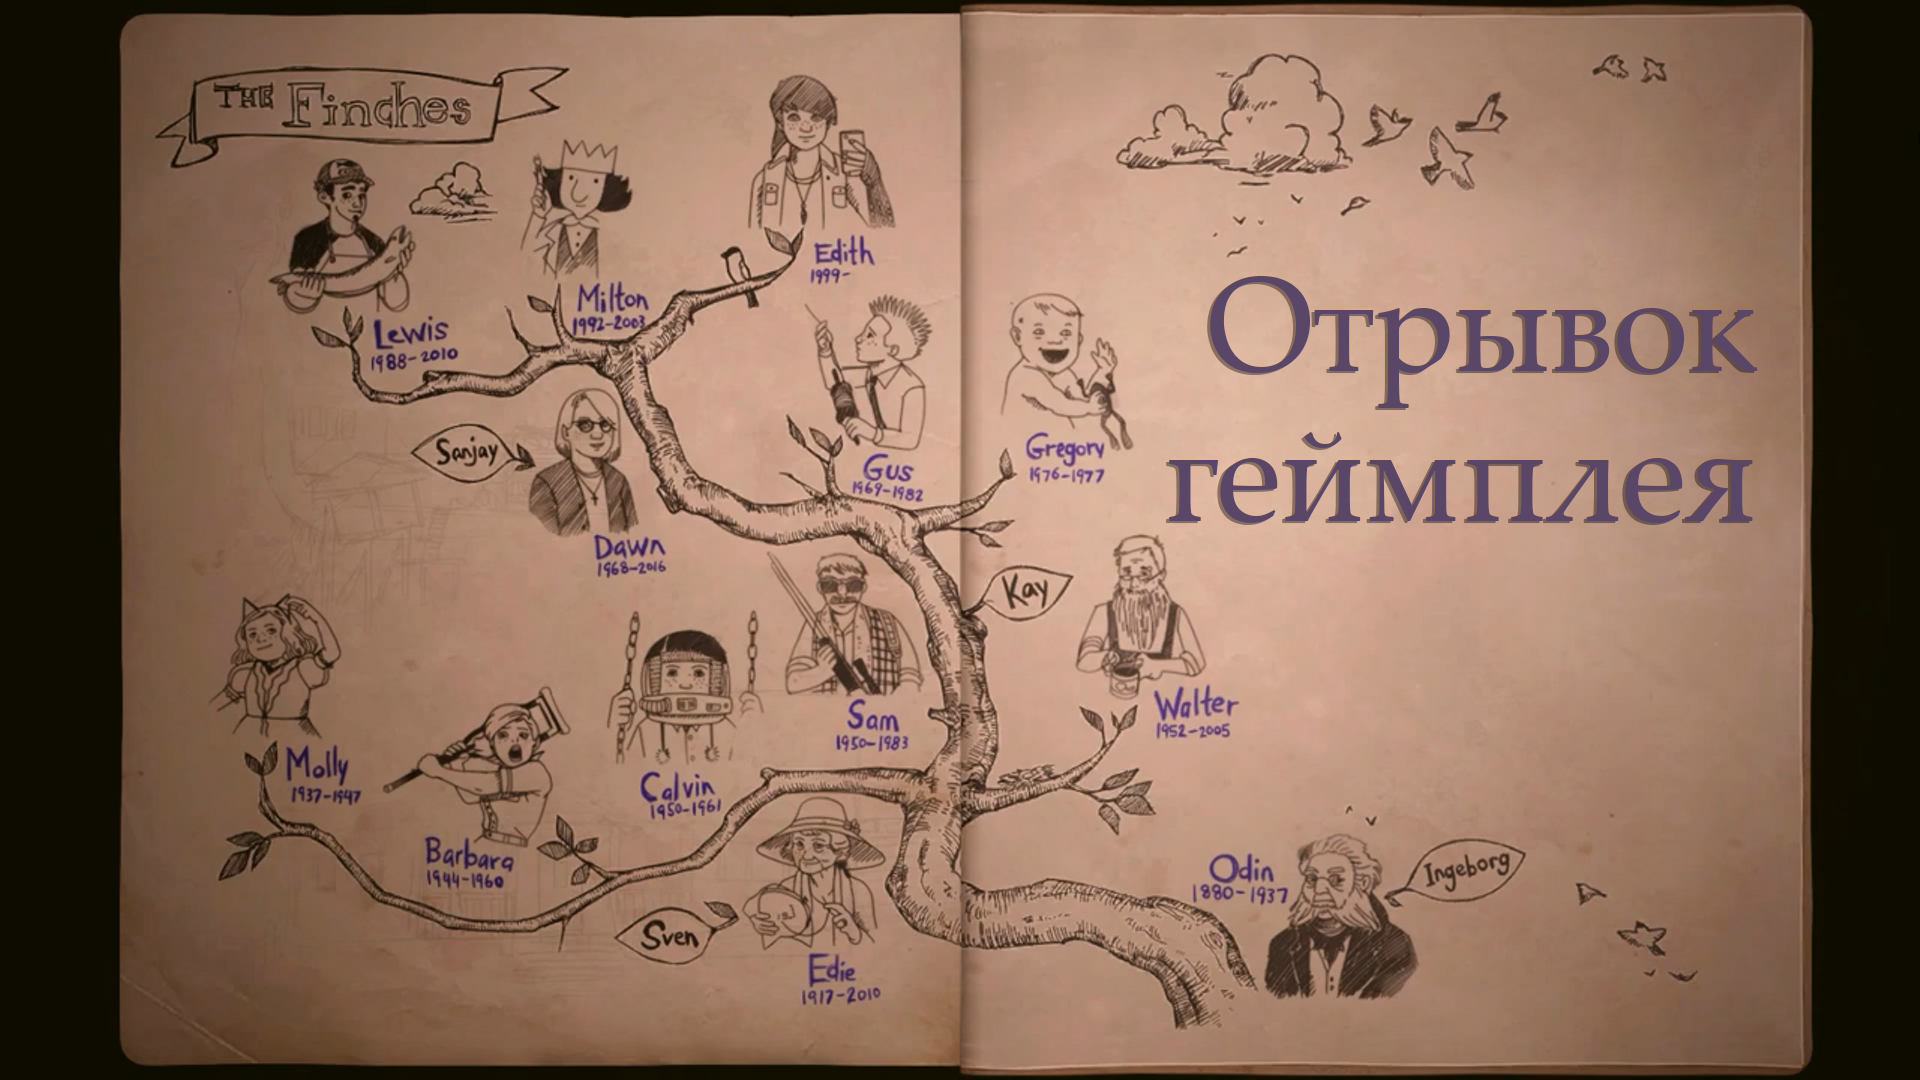 THE Finches
Edith
1999-
Milton
1992-2003
Lewis
1988-2010
Отрывок
геймплея
Sanjay
Gus
1969-1982
Gregory
1976-1977
Dawn
1968-2016
Kay
Walter
1952-2005
Sam
1950-1983
Molly
1937-1947
Calvin
1950-1961
Barbara
1944-1960
Odin
1880-1937
Ingeborg
Sven
Edie
1917-2010